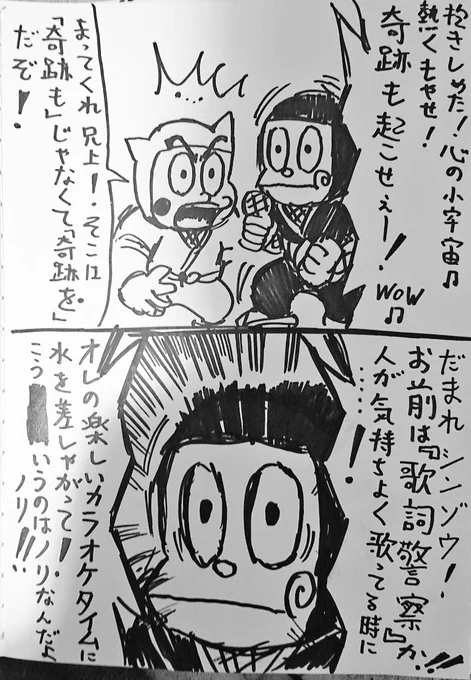 抱きしめた！心の小宇宙♫
熱くもやせ！
奇跡も起こせぇー！
WOW♫
まってくれ兄上！そこは
「奇跡も」じゃなくて「奇跡を」
だぞ！
だまれシンゾウ！
お前は『歌詞警察』か!!
人が気持ちよく歌ってる時に
……！
オレの楽しいカラオケタイムに
水を差しやがって！
こういうのはノリなんだよ
ノリ!!